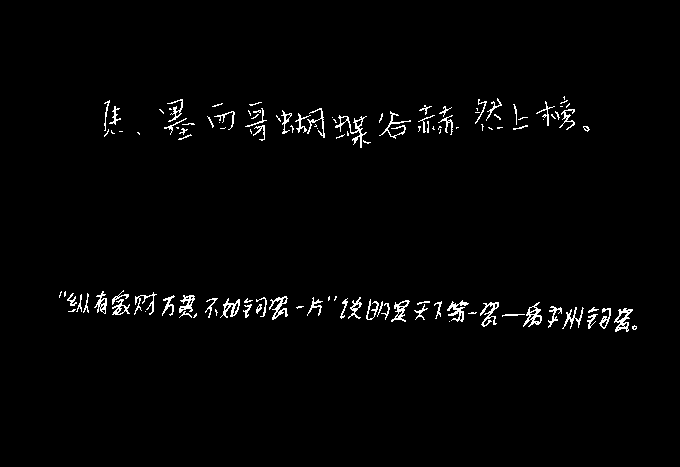 焦、墨西哥蝴蝶谷赫然上榜。
“纵有家财万贯,不如钧瓷一片”说的是天下第一瓷—禹州钧瓷。